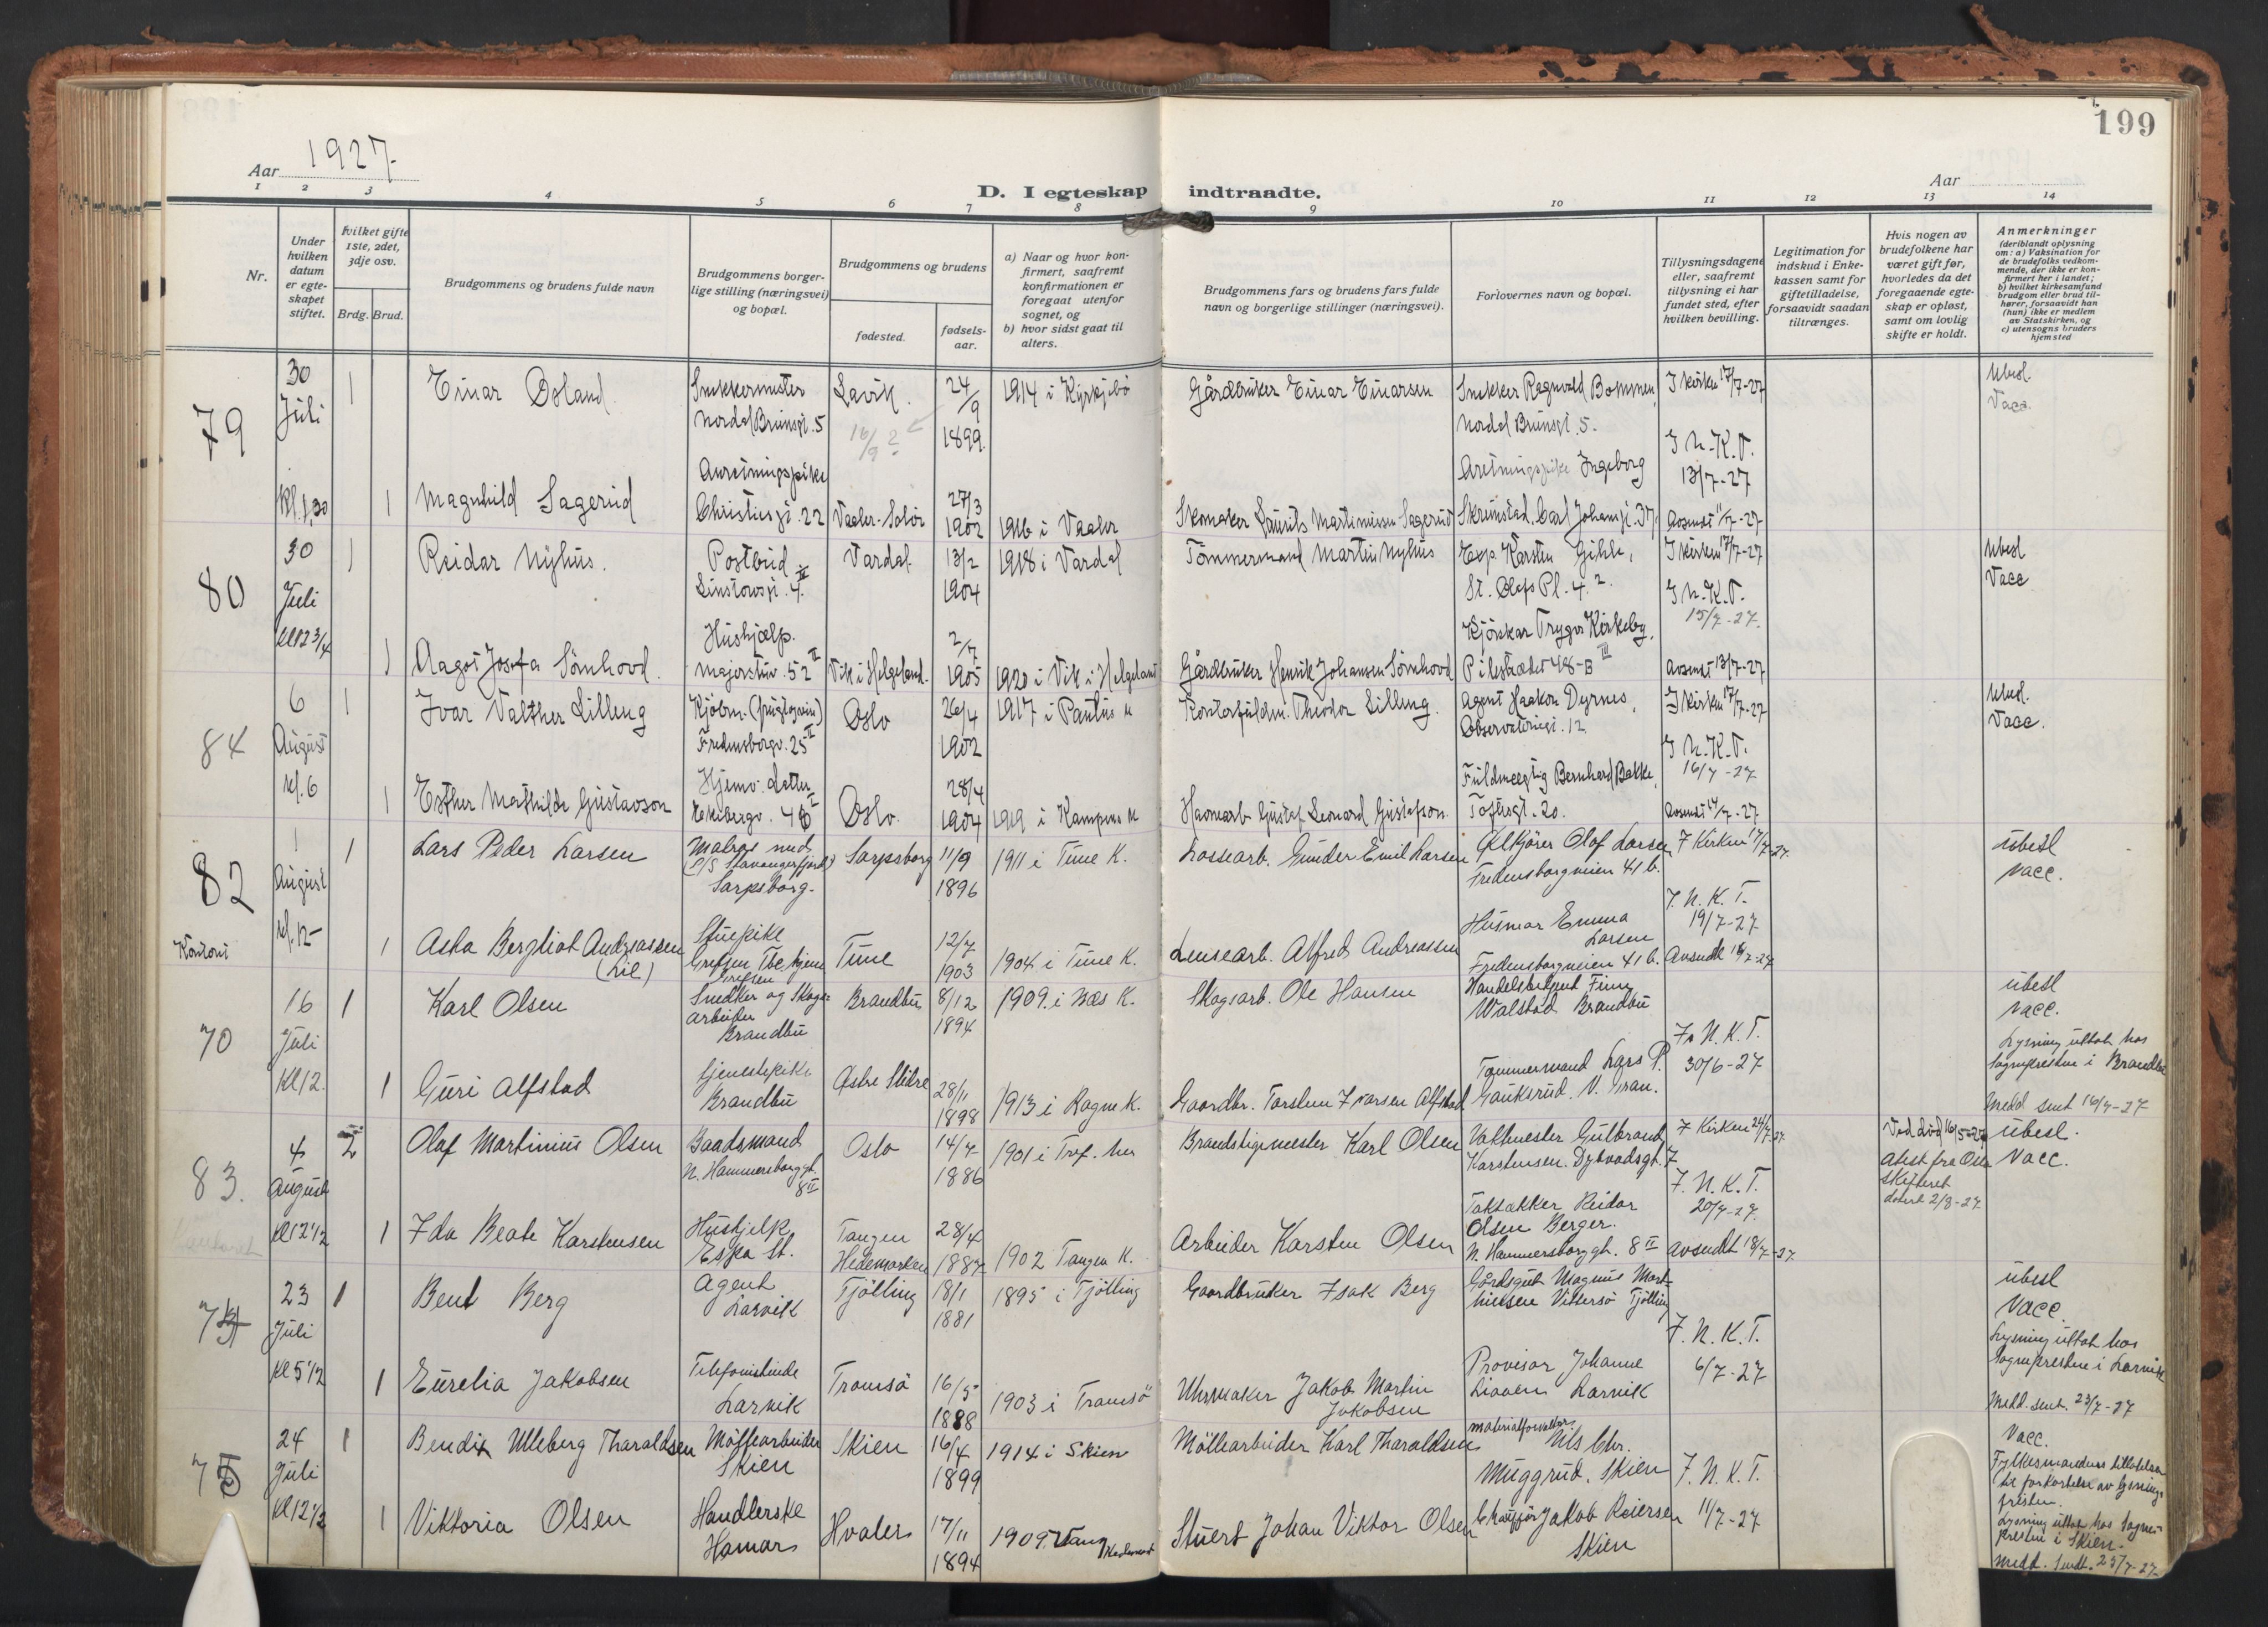 199
Aar 1927.
Aar
D. I egteskap indtraadte.
1 2 3 4 5 6 7 8 9 10 11 12 13 14
Nr.
Under hvilken datum er egteskapet stiftet.
hvilket gifte 1ste, 2det, 3dje osv.
Brdg. Brud.
Brudgommens og brudens fulde navn
Brudgommens borgerlige stilling (næringsvei) og bopæl.
Brudgommens og brudens
fødested.
fødselsaar.
a) Naar og hvor konfirmert, saafremt konfirmationen er foregaat utenfor sognet, og
b) hvor sidst gaat til alters.
Brudgommens fars og brudens fars fulde navn og borgerlige stillinger (næringsvei).
Forlovernes navn og bopæl.
Tillysningsdagene eller, saafremt tillysning ei har fundet sted, efter hvilken bevilling.
Legitimation for indskud i Enkekassen samt for giftetilladelse, forsaavidt saadan tiltrænges.
Hvis nogen av brudefolkene har været gift før, hvorledes da det foregaaende egteskap er opløst, samt om lovlig skifte er holdt.
Anmerkninger
(deriblandt oplysning om: a) Vaksination for de brudefolks vedkommende, der ikke er konfirmert her i landet; b) hvilket kirkesamfund brudgom eller brud tilhører, forsaavidt han (hun) ikke er medlem av Statskirken, og c) utensogns bruders hjemsted
79
30 Juli Kl. 1,30
1 Einar Øsland Snekkermester Nordal Brunsgt. 5 Lavik. 24/9 1899 1914 i Kyrkjebø Gårdbruker Einar Einarsen Snekker Ragnvald Bommen, Nordal Brunsgt. 5. I kirken 17/7-27 Ubesl. Vacc.
16/9 ?
I N.K.T. 13/7-27
1 Magnhild Sagerud Anretningspike Christiesgt. 22 Vaaler-Solør 27/3 1902 1916 i Vaaler Skomaker Laurits Martiniussen Sagerud Aretningspike Ingeborg Skrimstad, Carl Johansgt. 37 Avsendt 11/7-27
80
30 Juli Kl 12 3/4
1 Reidar Nyhus. Postbud Linstowsgt. 4. Vardal 13/2 1904 1918 i Vardal Tømmermand Martin Nyhus Exp. Karsten Gihle, St. Olafs Pl. 4. 2. I kirken 17/7-27 Ubesl Vacc
I N.K.T. 15/7-27.
1 Aagot Josefa Sømhovd. Hushjælp. Majorstuv. 52 II Vik i Helgeland. 2/7 1905 1920 i Vik i Helgeland Gårdbruker Henrik Johansen Sømhovd Kjørekar Trygve Kirkeby, Pilestrædet 48-B III Avsendt 13/7-27
84
6 August kl. 6
1 Ivar Valther Lilleng Kjøbm. Fredensborgv. 25 II Oslo 26/4 1902 1917 i Paulus K Kontorfuldm. Theodor Lilleng. Agent Haakon Dyrnes, Observatoriegt. 12 I kirken 17/7-27 Ubesl. Vacc.
I N.K.T. 16/7-27
1 Esther Mathilde Gustavson Hjemv. datter Ekebergv. Oslo. 28/4 1904 1919 i Kampens K Havnearb. Gustaf Leonard Gustafson. Fuldmægtig Bernhard Bakke, Toftesgt. 20. Avsendt 14/7-27
82
1 August kl. 12-
Kontoret
1 Lars Peder Larsen Matros med (S/S Stavangerfjord) Sarpsborg- Sarpsborg 11/9 1896 1911 i Tune K. Lossearb. Gunder Emil Larsen Ølkjører Olaf Larsen Fredensborgveien 41 b. I Kirken 17/7-27. Ubesl vacc.
I. N. K. T. 19/7-27
1 Asta Bergliot Andreassen (Lie) Stuepike Grefsen Grefsen Tune 12/7 1903 1904 i Tune K. Lensearb. Alfred Andreassen Husmor Emma Larsen Fredensborgveien 41 b. Avsendt 18/7-27
70
16 Juli Kl 12.
1 Karl Olsen Snedker og Skogsarbeider Brandbu Brandbu 8/12 1894 1909. i Næs K. Skogsarb. Ole Hansen Handelsbetjent Finn Walstad Brandbu ubesl vacc.
I. N. K. T. 30/6-27
Lysning uttat hos Sognepresten i Brandbu
Medd sent 16/7-27
1 Guri Alfstad tjenestepike Brandbu Østre Slidre 28/11 1898 1913 i Rogne K. Gaardbr. Torstein Ivarsen Alfstad Tømmermand Lars P. Gauksrud. V. Gran.
83.
4 August Kl 12 1/2
2 Olaf Martinius Olsen Baadsmand N. Hammersborggt. 8 II Oslo 14/7 1886 1901 i Tref. her Brandstigemester Karl Olsen Vaktmester Gulbrand Karstensen. Dybvadsgt. 7 I Kirken 24/7-27. Ved død 16/5-27 Attest fra Oslo Skifteret datert 2/8-27 ubesl. Vacc.
I. N. K. T. 20/7-27.
1 Ida Beate Karstensen Hushjelp Espa St. Tangen Hedemarken 28/4 1887 1902 Tangen K. Arbeider Karsten Olsen Taktækker Reidar Olsen Berger. N. Hammersborggt. 8 II avsendt 18/7-27.
74
23 Juli Kl 5 1/2
1 Bent Berg Agent Larvik Tjølling 18/1 1881 1895 i Tjølling Gaardbruker Isak Berg Gårdsgut Magnus Martinsen Vittersø Tjølling ubesl Vacc.
I. N. K. T. 6/7-27
Lysning uttat hos Sognepresten i Larvik
Medd. sent. 23/7-27
1 Eurelia Jakobsen Telefonistinde Larvik Tromsø 16/5 1888 1903 i Tromsø Uhrmaker Jakob Martin Jakobsen Provisor Johanne Liaaen Larvik
75
24 Juli Kl 12 1/2
1 Bendix Ulleberg Tharaldsen Møllearbeider Skien Skien 16/4 1899 1914 i Skien Møllearbeider Karl Tharaldsen materialforvalter Nils Chr. Muggrud. Skien I. N. K. T. 11/7-27 Vacc.
Fylkesmandens tillatelse til forkortelse av lysningsfristen.
Lysning uttat hos Sognepresten i Skien.
Medd. Sendt. 25/7-27-
1 Viktoria Olsen Handlerske Hamar Hvaler 17/11 1894 1909. Vang Hedemark Stuert Johan Viktor Olsen Chauffør Jakob Reiersen Skien